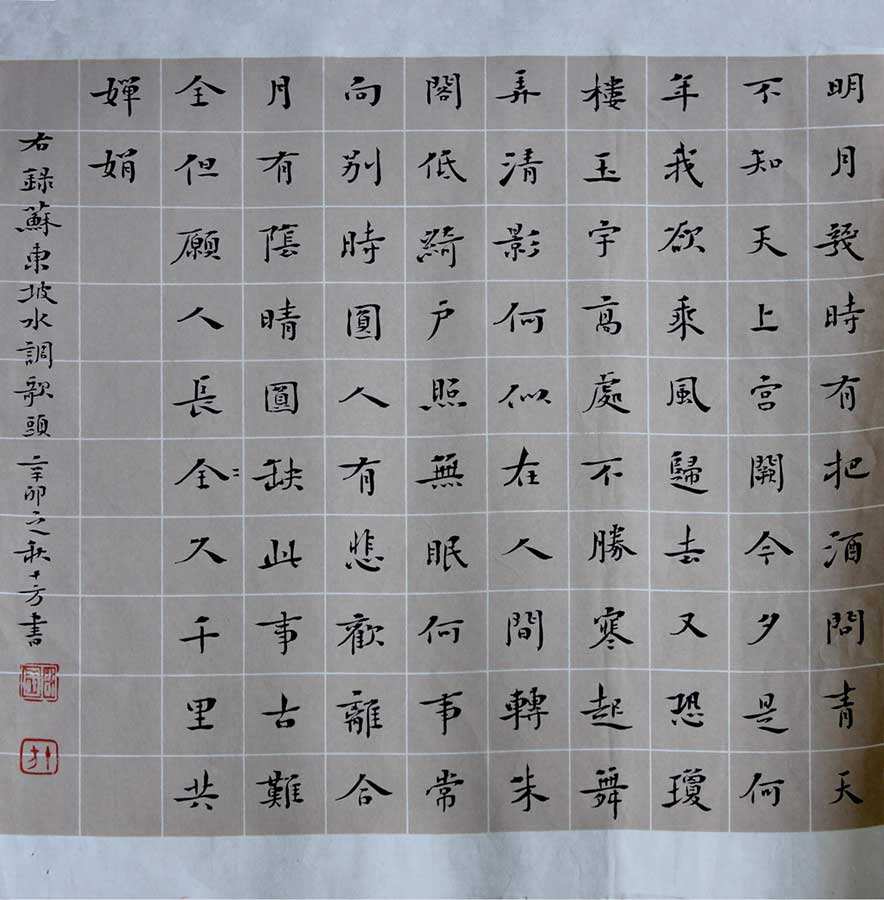 明月幾時有把酒問青天
不知天上宮闕今夕是何
年我欲乘風歸去又恐瓊
樓玉宇高處不勝寒起舞
弄清影何似在人間轉朱
閣低綺戶照無眠何事常
向别時圓人有悲歡離合
月有陰晴圓缺此事古難
全但願人長全久千里共
嬋娟
右錄蘇東坡水調歌頭 辛卯之秋十方書